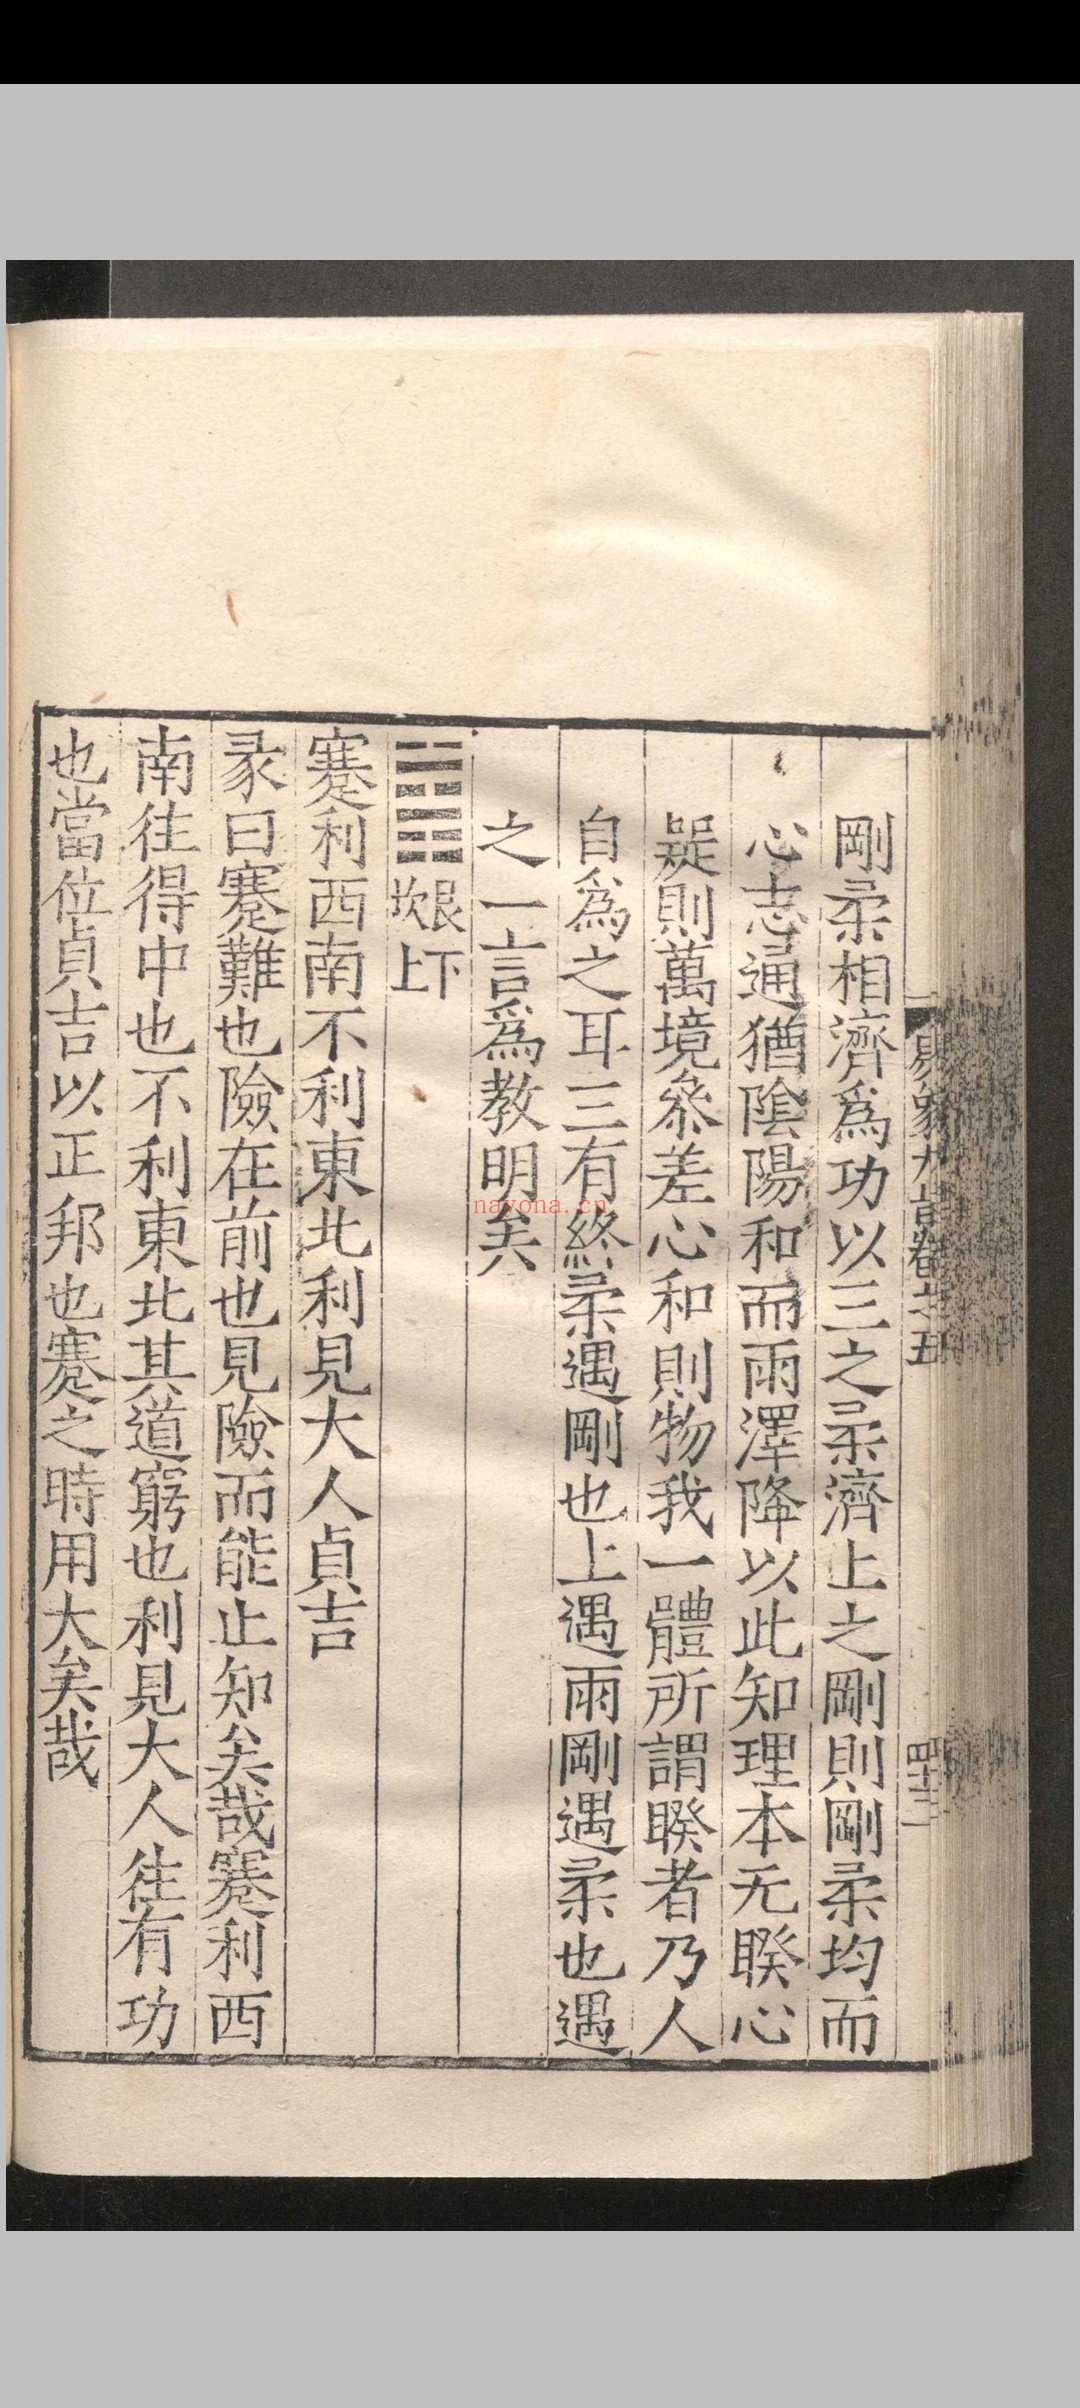 剛柔相濟爲功以三之柔濟上之剛則剛柔均而
心志通猶陰陽和而雨澤降以此知理本无睽心
疑則萬境叅差心和則物我一體所謂睽者乃人
自爲之耳三有終柔遇剛也上遇雨剛遇柔也遇
之一言爲教明矣
艮下
坎上
蹇利西南不利東北利見大人貞吉
彖曰蹇難也險在前也見險而能止知矣哉蹇利西
南往得中也不利東北其道窮也利見大人往有功
也當位貞吉以正邦也蹇之時用大矣哉
nayona.cn